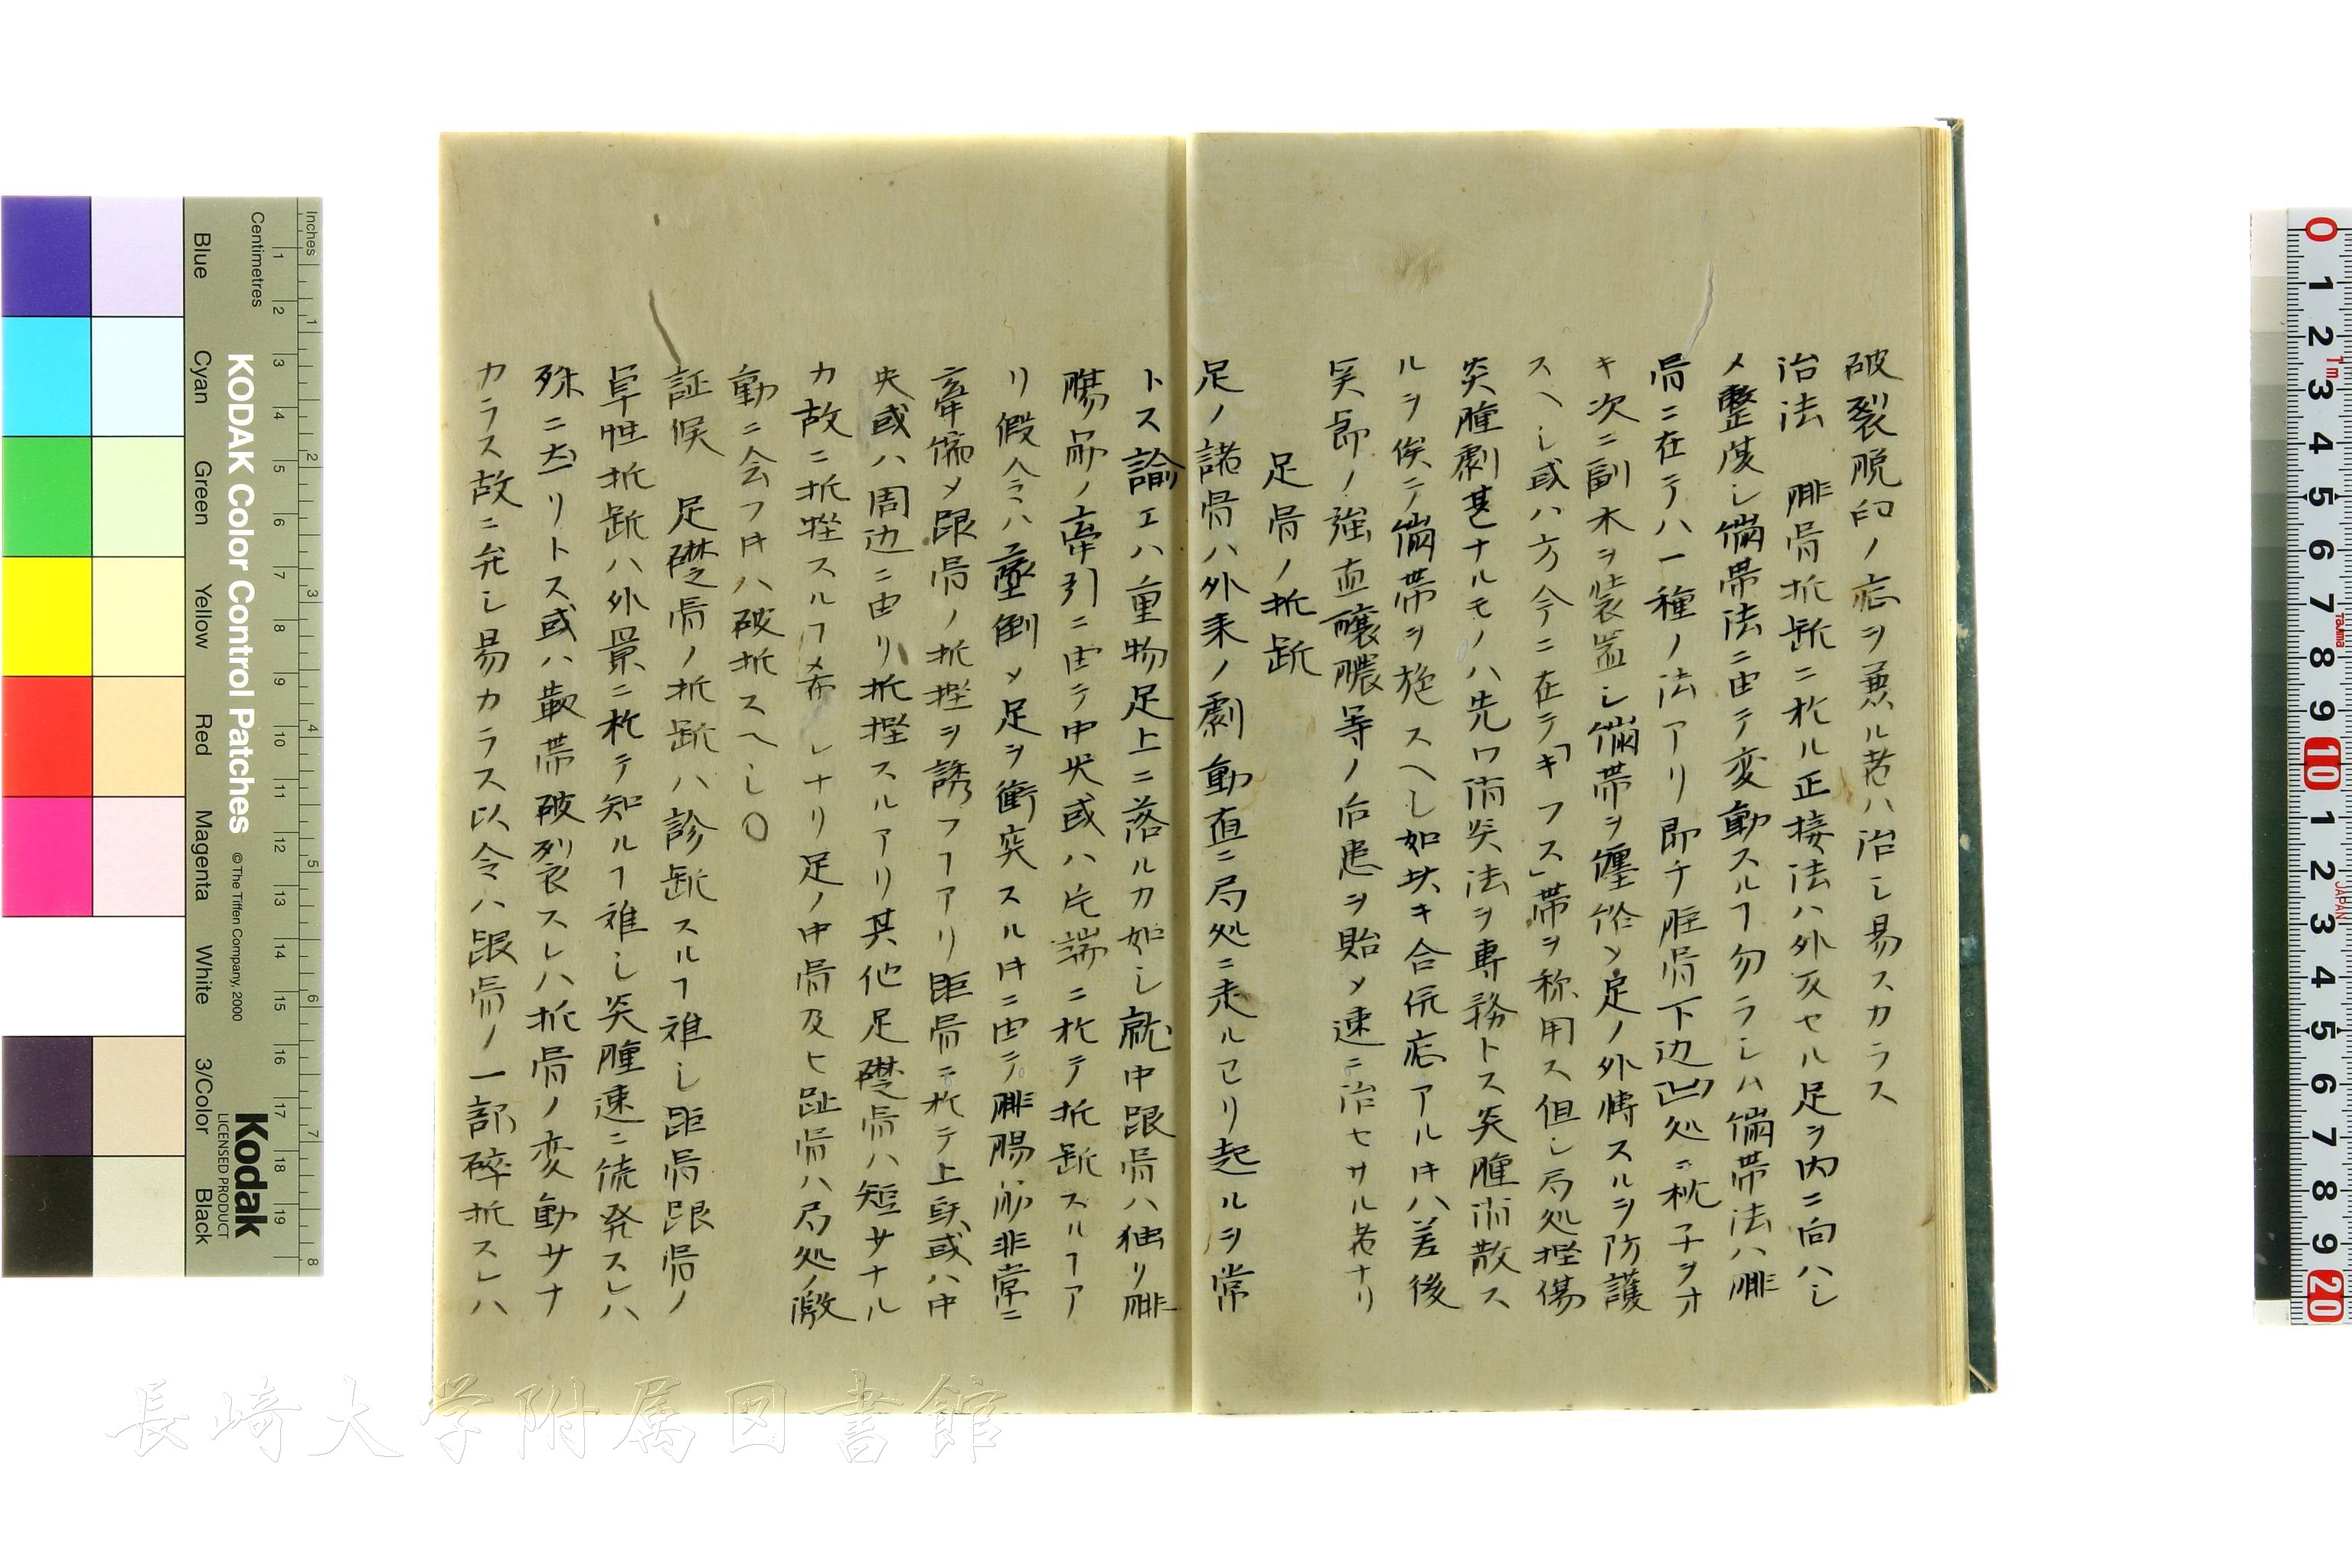 破裂脱臼ノ症ヲ兼ル者ハ治シ易スカラス
治法 腓骨折断ニ於ル正接法ハ外反セル足ヲ内ニ向ハシ
メ整復シ繃帯法ニ由テ変動スルヿ勿ラシハ繃帯法ハ腓
骨ニ在テハ一種ノ法アリ即チ脛骨下辺凹処ニ枕子ヲオ
キ次ニ副木ヲ装置シ繃帯ヲ纏絡メ足ノ外転スルヲ防護
スヘシ或ハ方今ニ在テ「キフス」帯ヲ称用ス但シ局処挫傷
炎腫劇甚ナルモノハ先ワ消炎法ヲ専務トス炎腫消散ス
ルヲ俟テ繃帯ヲ施スヘシ如此キ合併症アル𪜈ハ差後
関節ノ強直醸膿等ノ后患ヲ貽メ速ニ治セサル者ナリ
足骨ノ折断
足ノ諸骨ハ外来ノ劇動直ニ局処ニ走ルヨリ起ルヲ常
トス諭エハ重物足上ニ落ルカ如シ就中跟骨ハ独リ腓
腸筋ノ牽引ニ由テ中央或ハ片端ニ於テ折断スルヿア
リ假令ハ墜倒メ足ヲ衝突スル𪜈ニ由テ腓腸筋非常ニ
牽縮メ跟骨ノ折挫ヲ誘フヿアリ距骨ニ於テ上頭或ハ中
央或ハ周辺ニ由リ折挫スルアリ其他足礎骨ハ短サナル
カ故ニ折挫スルヿ希レナリ足ノ中骨及ヒ趾骨ハ局処ノ激
動ニ会フ𪜈ハ破折スヘシ〇
証候 足礎骨ノ折断ハ診断スルヿ難シ距骨跟骨ノ
単性折断ハ外景ニ於テ知ルヿ難シ炎腫速ニ続発スレハ
殊ニ然リトス或ハ靱帯破裂スレハ折骨ノ変動サナ
カラス故ニ弁シ易カラス以令ハ跟骨ノ一部碎折スレハ
Inches
Centimetres
KODAK Color Control Patches
©The Tiffen Company, 2000
Kodak
LICENSED PRODUCT
Blue
Cyan
Green
Yellow
Red
Magenta
White
3/Color
Black
長崎大学附属図書館